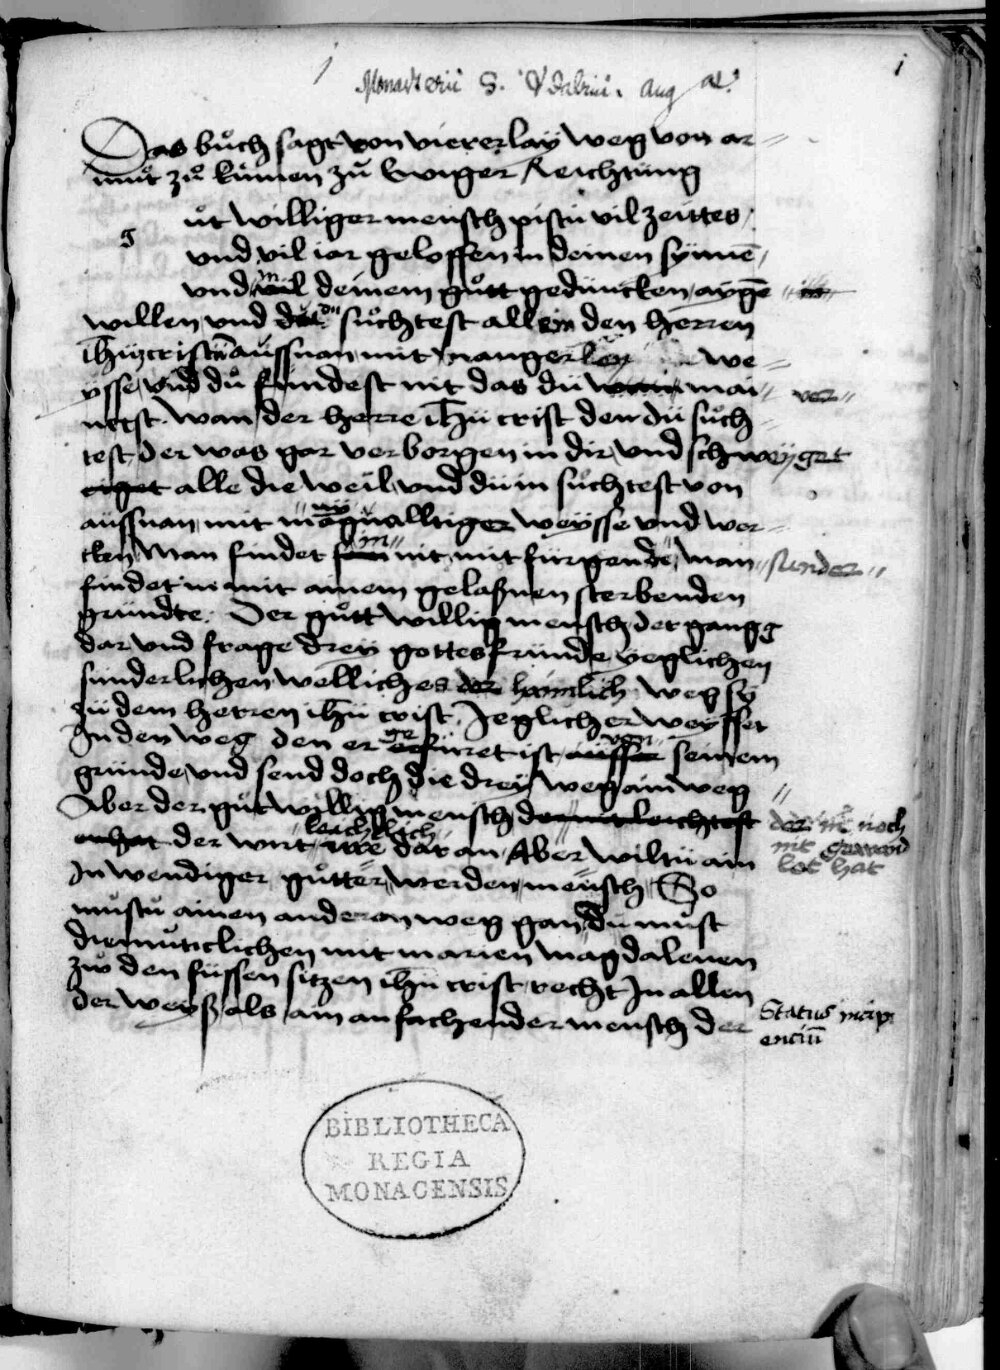 1 Monasterii S. Vdalrici. Aug al. 1
Das bůch sagt von viererlay weg von ar=
můt zů kumen zů Ewiger Reichtung
g ůt williger mensch pistu vil zeittes
und vil iar geloffen in deinen synnē
und in deinem gůtt geduncken aygē
willen und sůchtest allein den herren
ihū cristū aussnan mit mangerley we=
ysse und du findest nit das du mai= ver=
netst. wan der herre ihū crist den du sůch
test, der was gar verborgen in dir, und schweyget
eiget alle die weil und du in sůchtest von
aussnan mit weysse und wer=
cken Man findet in nit mit fürgende, man sunder
findet in mit ainem gelaßnen sterbenden
grundte. Der gůtt willig mensch der gang
dar und frage drey gottes fründe yeglichen
sunderlichen welliches der haimlich weg sy
zů dem herren ihū crist. Jeglicher weysset
In den weg den er ist von seinem
grunde, und send doch die drey weg ain weg
Aber der gůt willig mensch der in noch
nit
lot hat
der wirt leichtlich irre dar an Aber wiltu ain
Inwendiger gůtter werden mensch So
můstu ainen anderen weg gan du můst
diemůticlichen mit marien magdalenen
zů den füssen sitzen ihū crist recht In allen
der weyß als ain anfachender mensch der
Status incipi
enciū
BIBLIOTHECA
REGIA
MONACENSIS